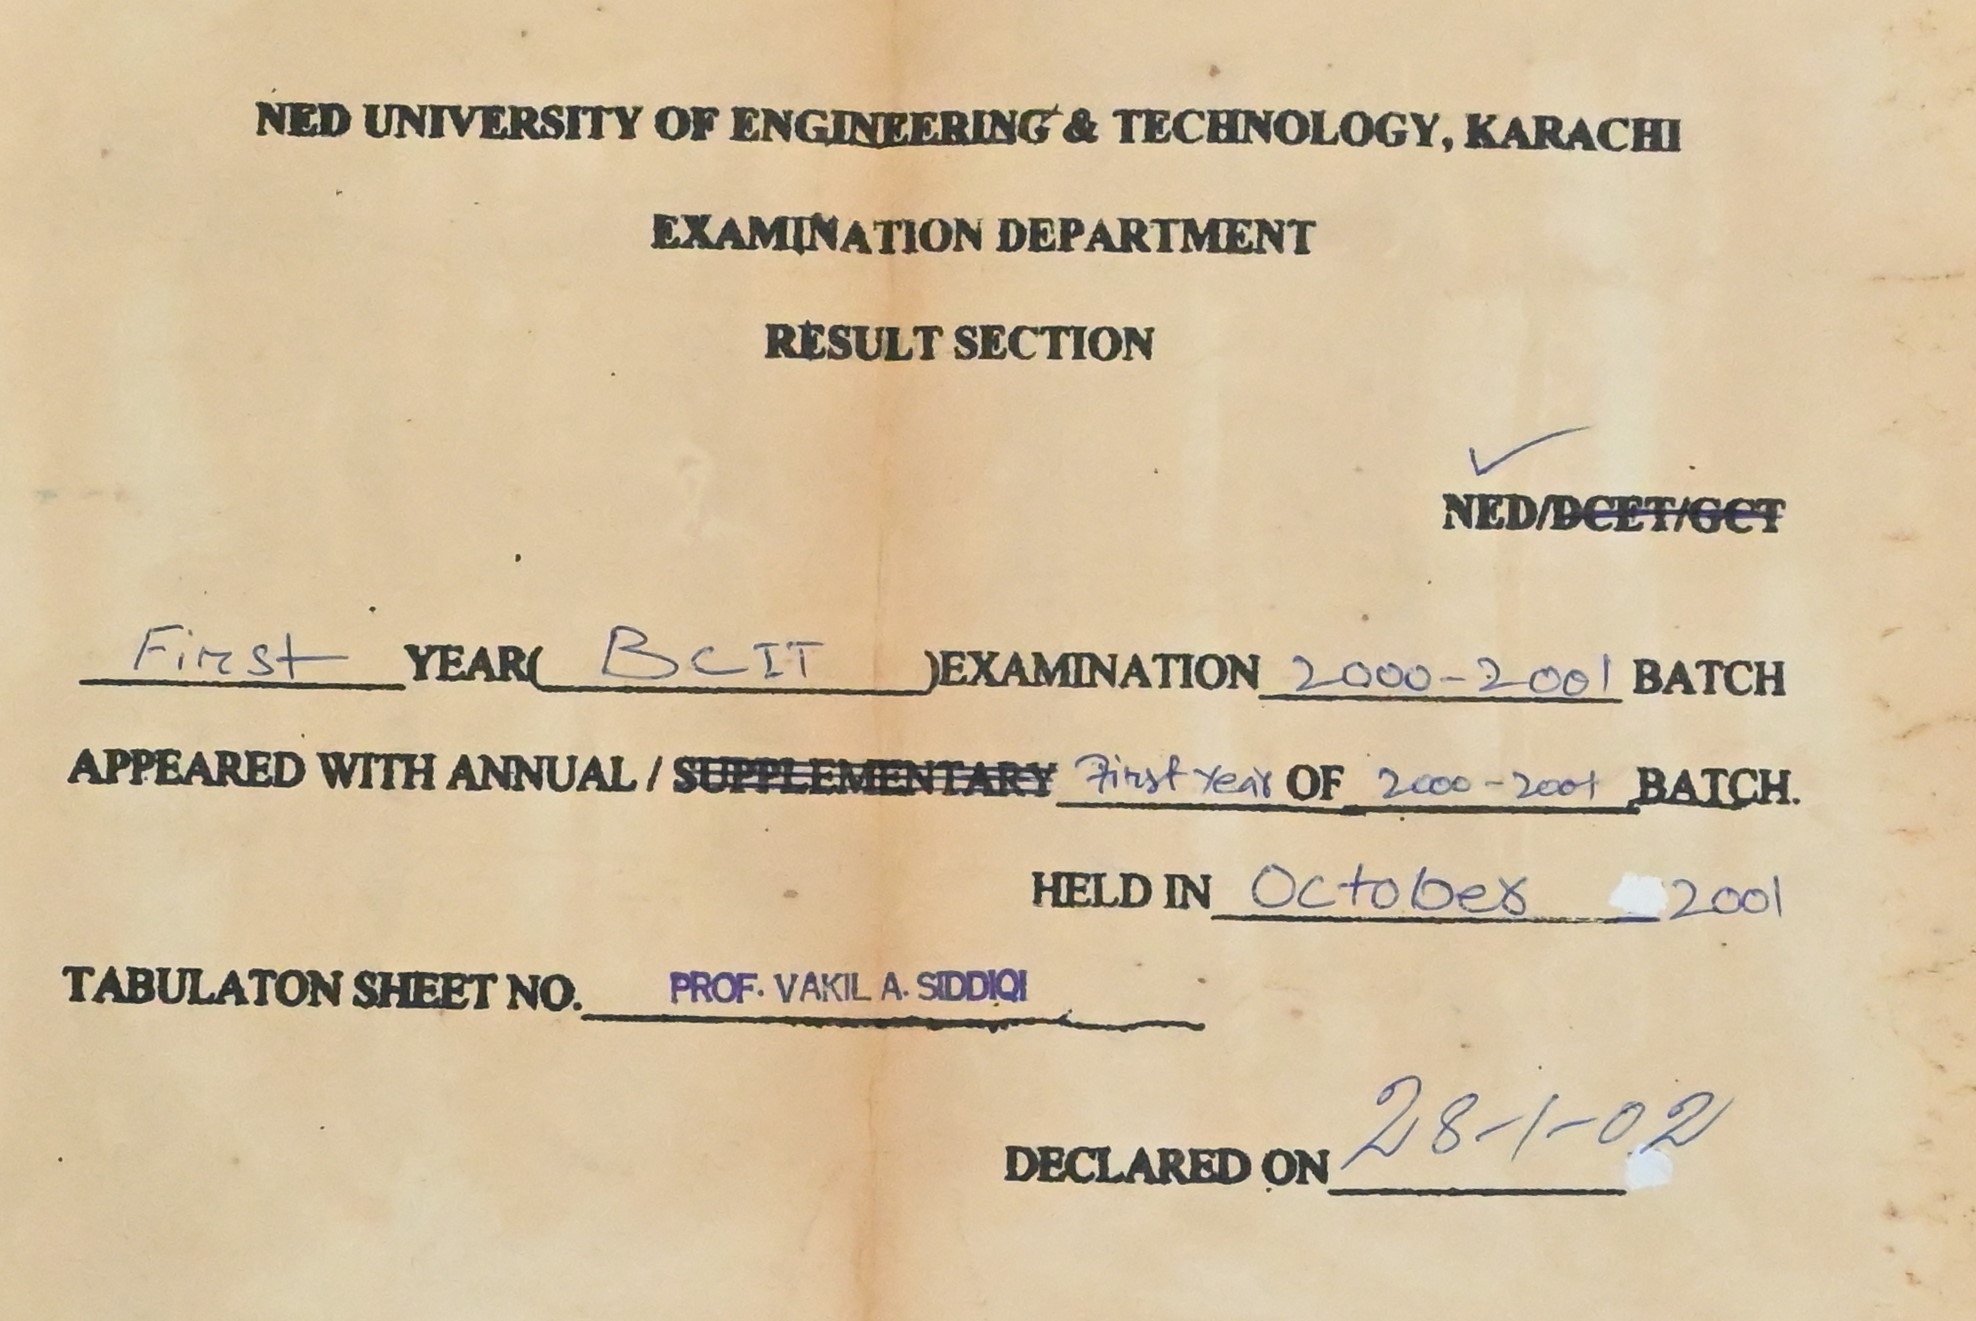 NED UNIVERSITY OF ENGINEERING & TECHNOLOGY, KARACHI
EXAMINATION DEPARTMENT
RESULT SECTION
NED/DCET/GCT
First YEAR( BCIT )EXAMINATION 2000-2001 BATCH
APPEARED WITH ANNUAL / SUPPLEMENTARY First Year OF 2000-2001 BATCH.
HELD IN October 2001
TABULATON SHEET NO. PROF. VAKIL A. SIDDIQI
DECLARED ON 28-1-02